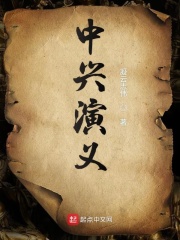 中兴演义
著
起点中文网